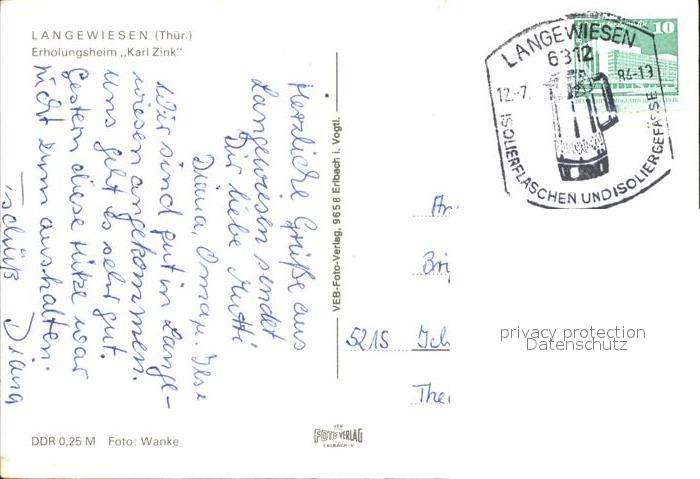 LANGEWIESEN (Thür.)
Erholungsheim „Karl Zink"
Herzliche Grüße aus
Langewiesen sendet
Dir liebe Mutti
Diana, Oma u. Ilse
Wir sind gut in Lange-
wiesen angekommen.
Uns geht es sehr gut.
Gestern diese Hitze war
nicht zum aushalten.
Tschüß Diana
VEB-Foto-Verlag, 9658 Erlbach i. Vogtl.
LANGEWIESEN
6312
12.-7. 84-13
ISOLIERFLASCHEN UND ISOLIERGEFÄSSE
10
An
Bri
5215 Ich
The
privacy protection
Datenschutz
DDR 0,25 M Foto: Wanke
VEB
FOTO VERLAG
ERLBACH/V